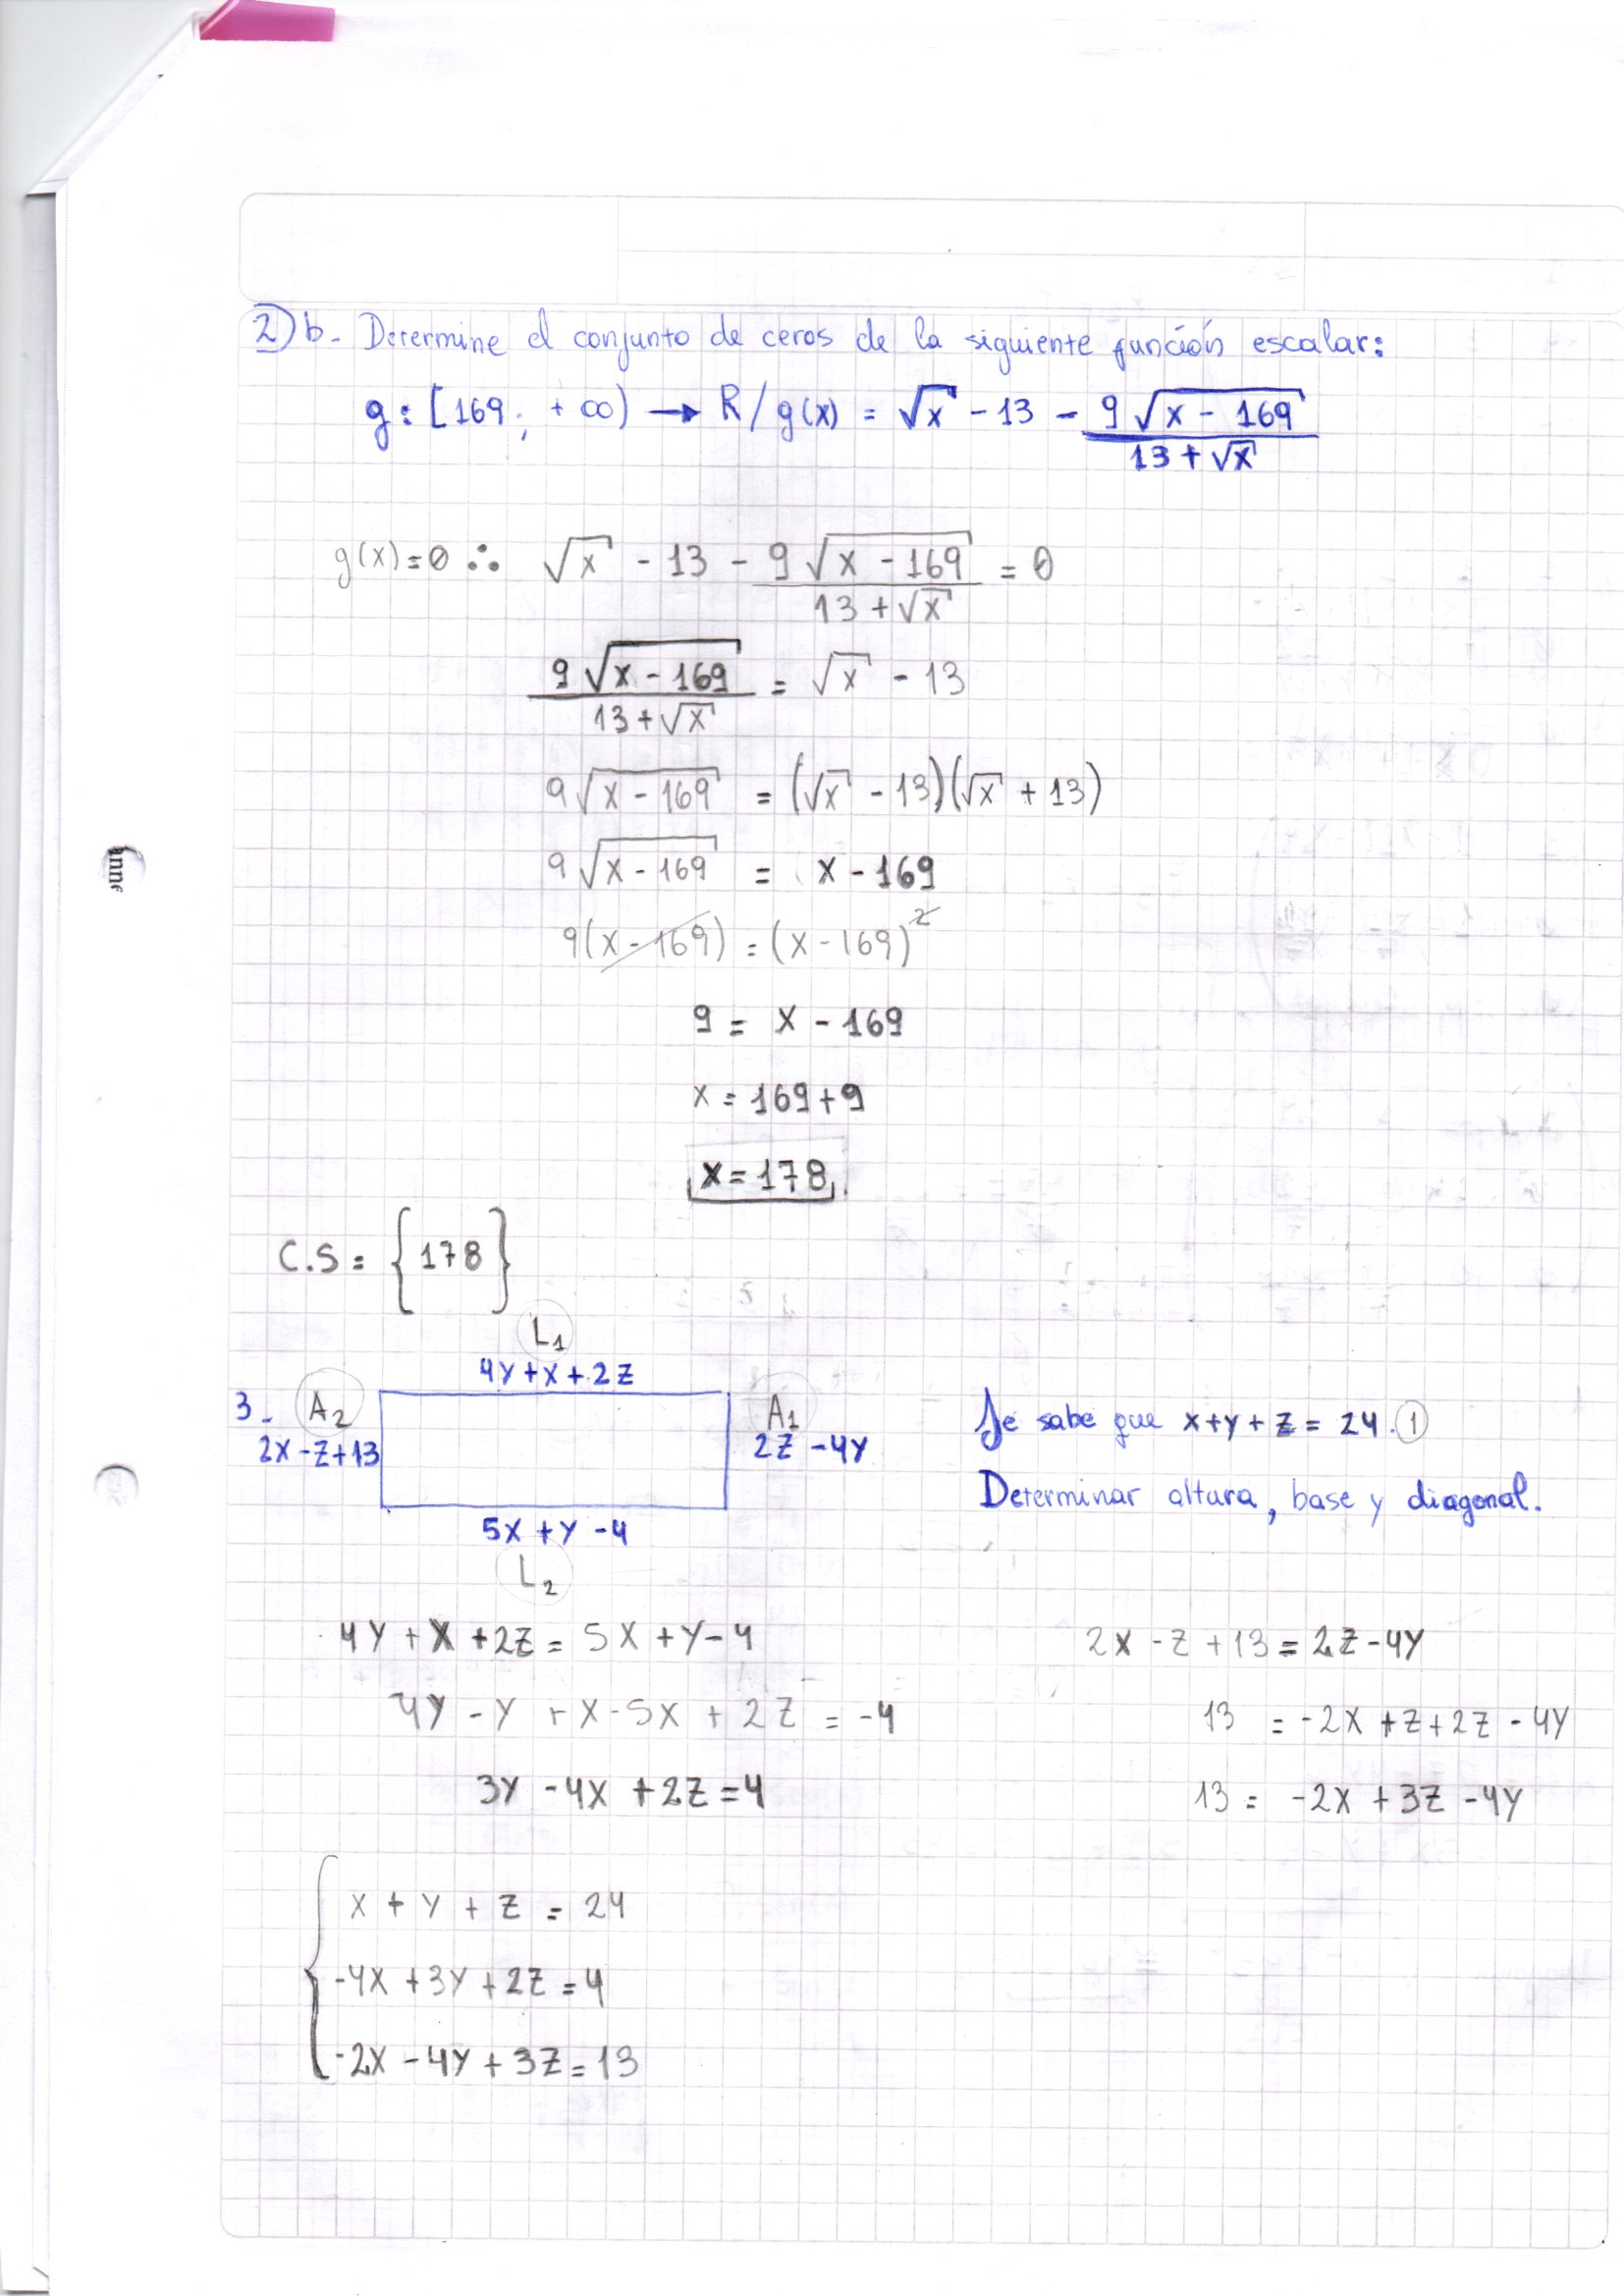 2) b- Determine el conjunto de ceros de la siguiente función escalar:
g: [169; +∞) → R / g(x) = √x - 13 - 9√(x - 169) / (13 + √x)
g(x)=0 ∴ √x - 13 - 9√(x - 169) / (13 + √x) = 0
9√(x - 169) / (13 + √x) = √x - 13
9√(x - 169) = (√x - 13)(√x + 13)
9√(x - 169) = x - 169
9(x - 169) = (x - 169)²
9 = x - 169
x = 169 + 9
x = 178
C.S = {178}
L1
4Y + X + 2Z
3- A2
2X - Z + 13
A1
2Z - 4Y
5X + Y - 4
L2
Se sabe que x + y + z = 24. 1
Determinar altura, base y diagonal.
4Y + X + 2Z = 5X + Y - 4
4Y - Y + X - 5X + 2Z = -4
3Y - 4X + 2Z = 4
2X - Z + 13 = 2Z - 4Y
13 = -2X + Z + 2Z - 4Y
13 = -2X + 3Z - 4Y
X + Y + Z = 24
-4X + 3Y + 2Z = 4
-2X - 4Y + 3Z = 13